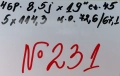 4бр. 8,5j x 19" ет. 45
5 x 114,3 м.о. 72,6/67,1
№231